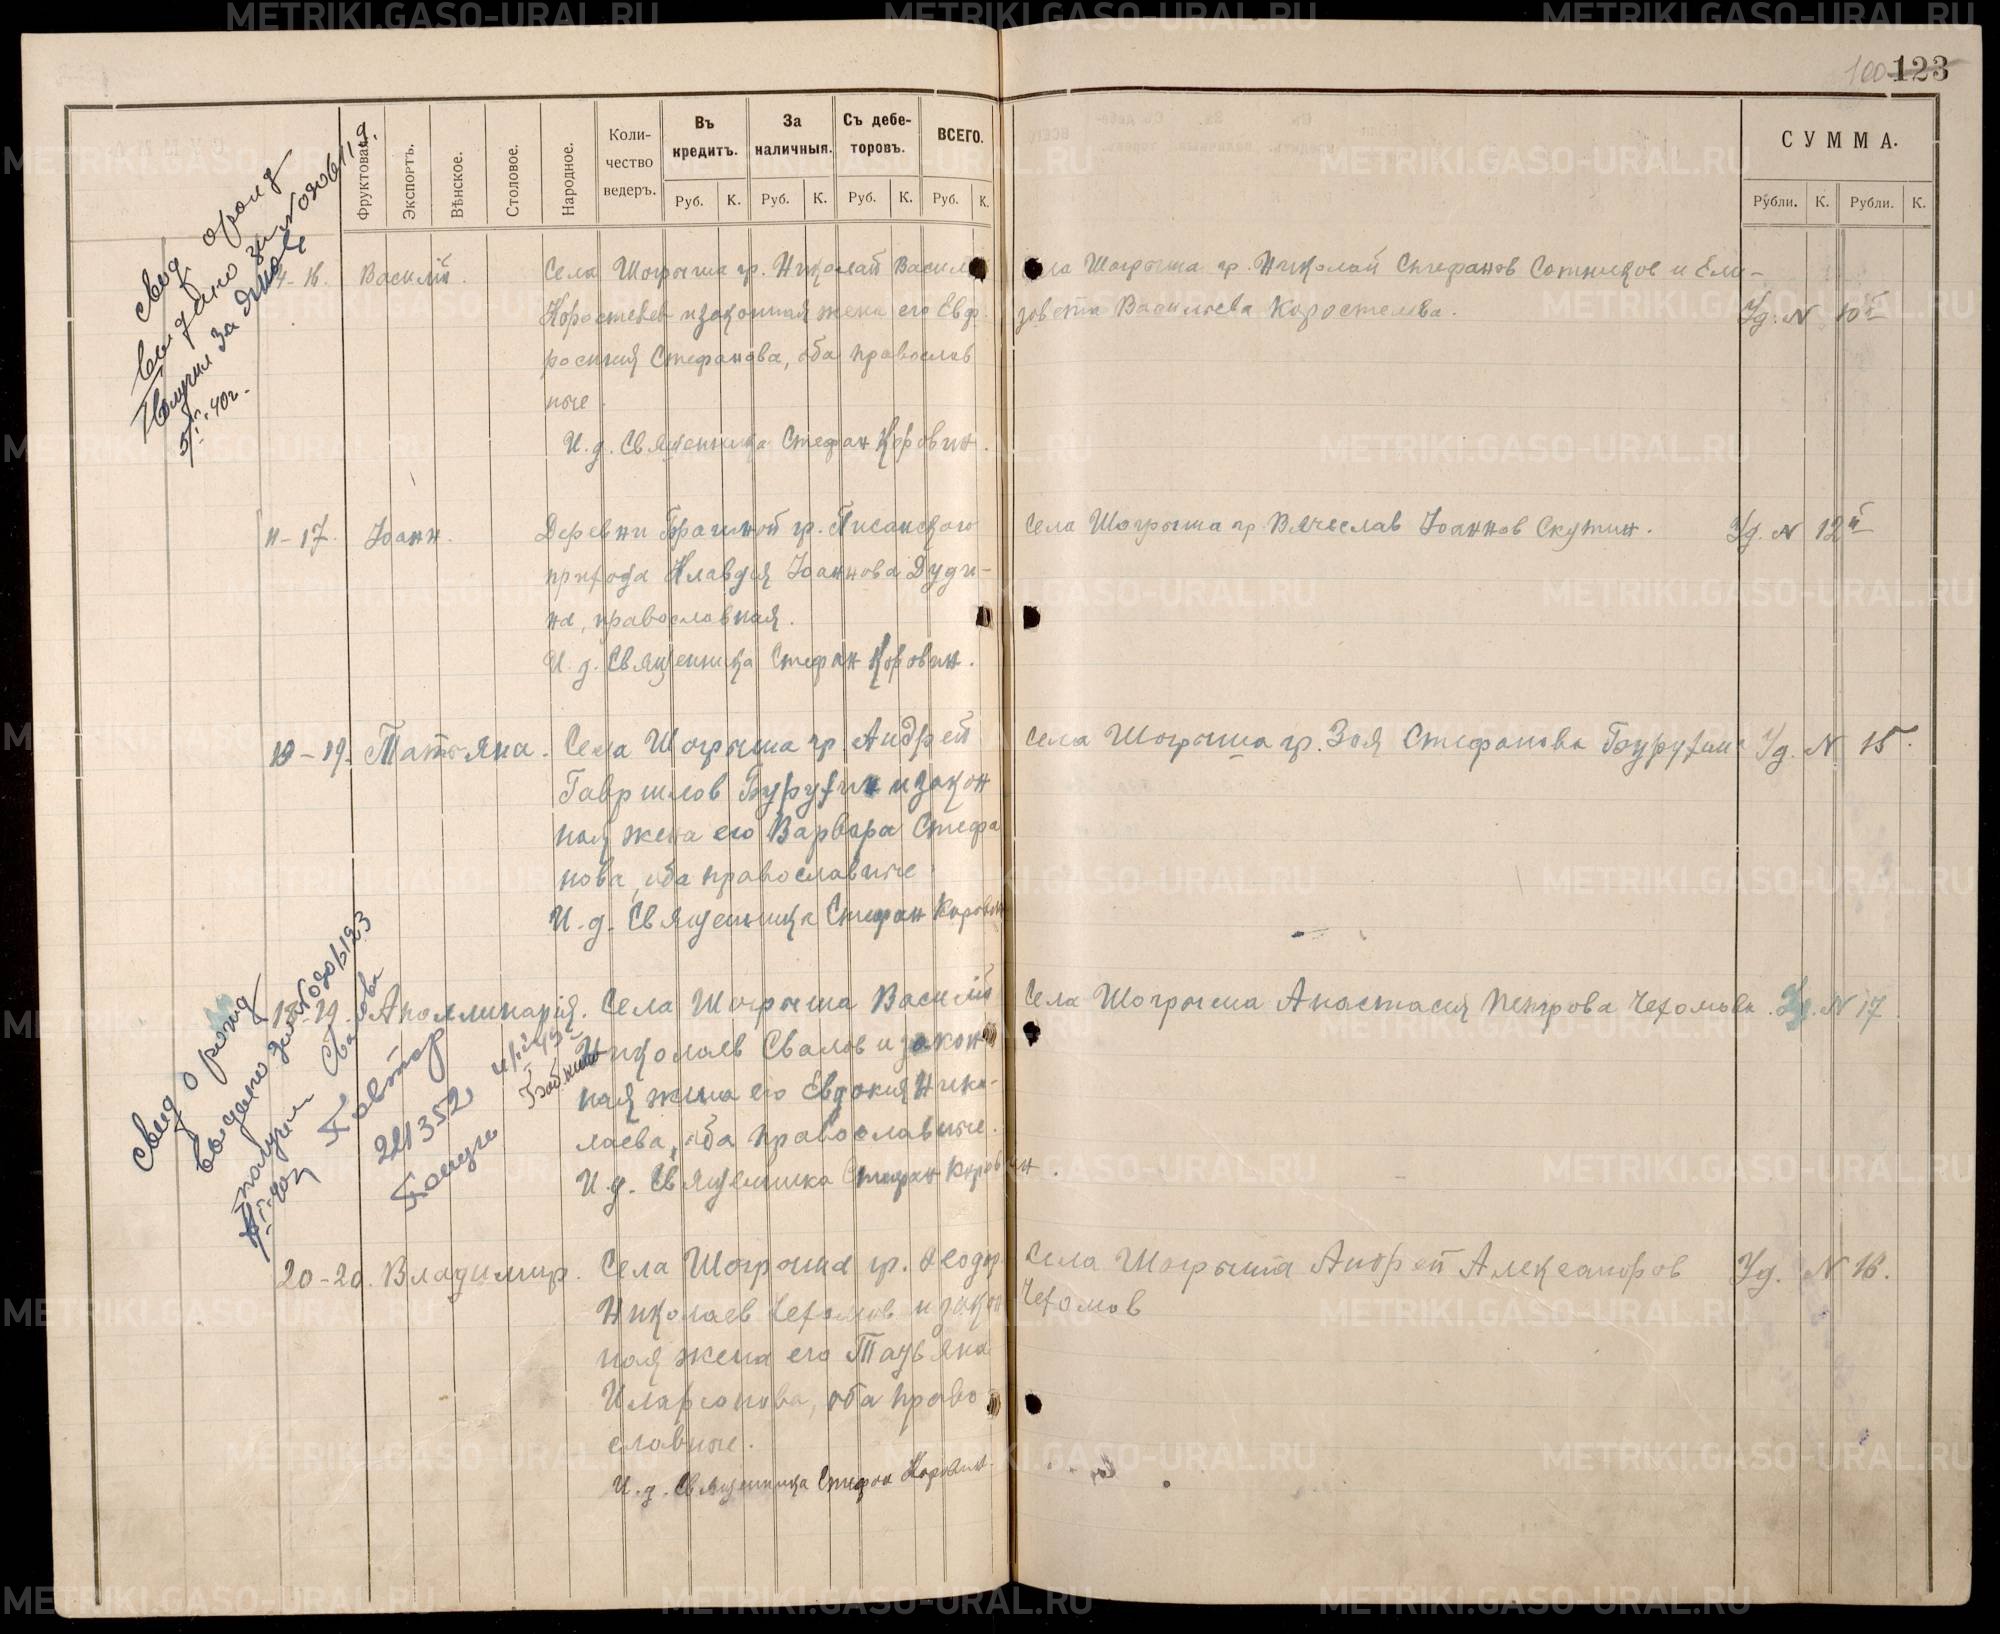 100 123
Фруктовая.
Экспортъ.
Вѣнское.
Столовое.
Народное.
Коли-
чество
ведеръ.
Въ
кредитъ.
За
наличныя.
Съ дебе-
торовъ.
ВСЕГО.
Руб. К. Руб. К. Руб. К. Руб. К.
СУММА.
Рубли. К. Рубли. К.
свид о рожд
выдано за №
Получил за
40г.
16. Василій.
Села Шогрыша гр. Николай Васил
Коростелев и законная жена его Евф
росиния Стефанова, оба православ
ные.
И. д. Священника Стефан Коровин.
Села Шогрыша гр. Николай Стефанов Сотников и Ели-
зовета Васильева Коростелева.
Уд. N 10й
11-17. Иоанн.
Деревни Брагиной гр. Писанского
прихода Клавдия Иоаннова Дуди-
на, православная.
И. д. Священника Стефан Коровин.
Села Шогрыша гр Вячеслав Иоаннов Скутин.
Уд. N 12й
19. Татьяна.
Села Шогрыша гр. Андрей
Гаврилов Бурухин и закон
ная жена его Варвара Стефа
нова, оба православные.
И. д. Священника Стефан Коровин
Села Шогрыша гр. Зоя Стефанова Бурухина
Уд. N 15.
18-19. Аполлинарія.
Села Шогрыша Василий
Николаев Свалов и закон
ная жена его Евдокия Нико-
лаева, оба православные.
И. д. Священника Стефан Коровин.
Села Шогрыша Анастасия Петрова Чехомова.
Уд. N 17
свид о рожд
выдано за №
получил Свалова
Повтор
221352
20-20. Владимир.
Села Шогрыша гр. Феодор
Николаев Чехомов и закон
ная жена его Татьяна
Иларионова, оба право
славные.
И. д. Священника Стефан Коровин.
Села Шогрыша Андрей Александров
Чехомов
Уд. N 16.
METRIKI.GASO-URAL.RU